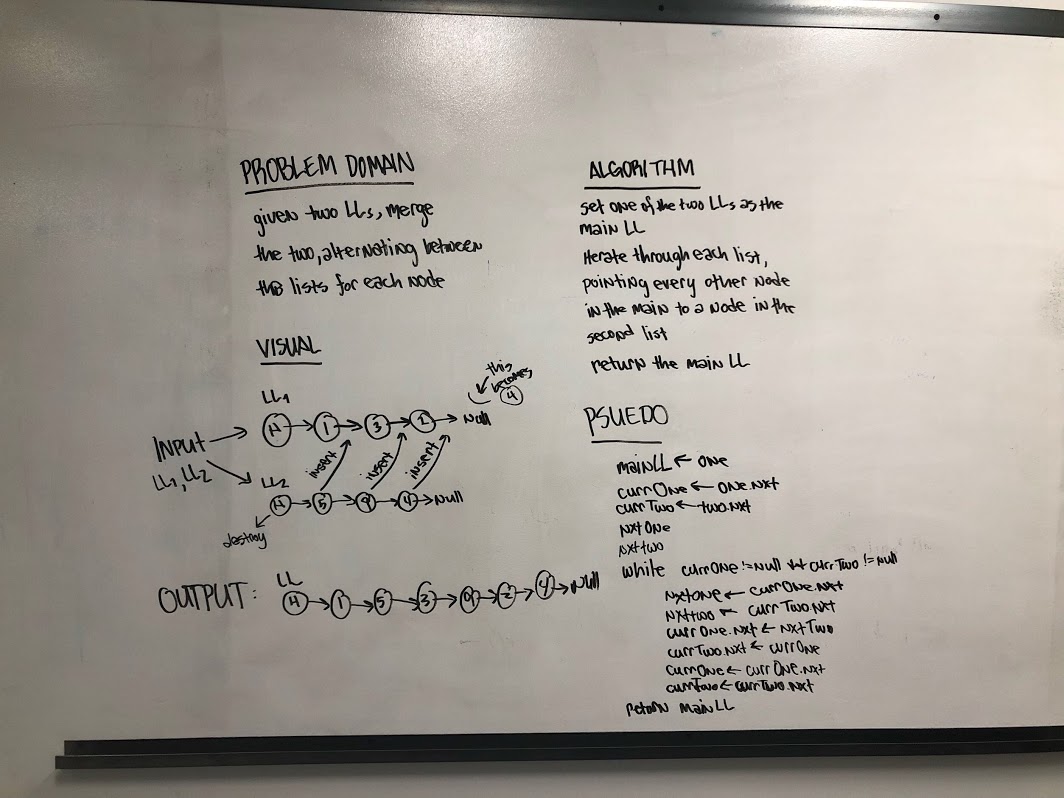 PROBLEM DOMAIN
given two LLs, merge
the two, alternating between
the lists for each node
VISUAL
LL1
this
becomes
4
INPUT
LL1, LL2
H 1 3 2 Null
insert insert insert
LL2
H 5 9 4 Null
destroy
OUTPUT:
LL
H 1 5 3 9 2 4 Null
ALGORITHM
set one of the two LLs as the
main LL
iterate through each list,
pointing every other node
in the main to a node in the
second list
return the main LL
PSUEDO
mainLL ← one
currOne ← one.nxt
currTwo ← two.nxt
nxtOne
nxttwo
while currOne != Null && currTwo != Null
nxtone ← currOne.nxt
nxttwo ← currTwo.nxt
currOne.nxt ← nxtTwo
currTwo.nxt ← currOne
currOne ← currOne.nxt
currTwo ← currTwo.nxt
return mainLL